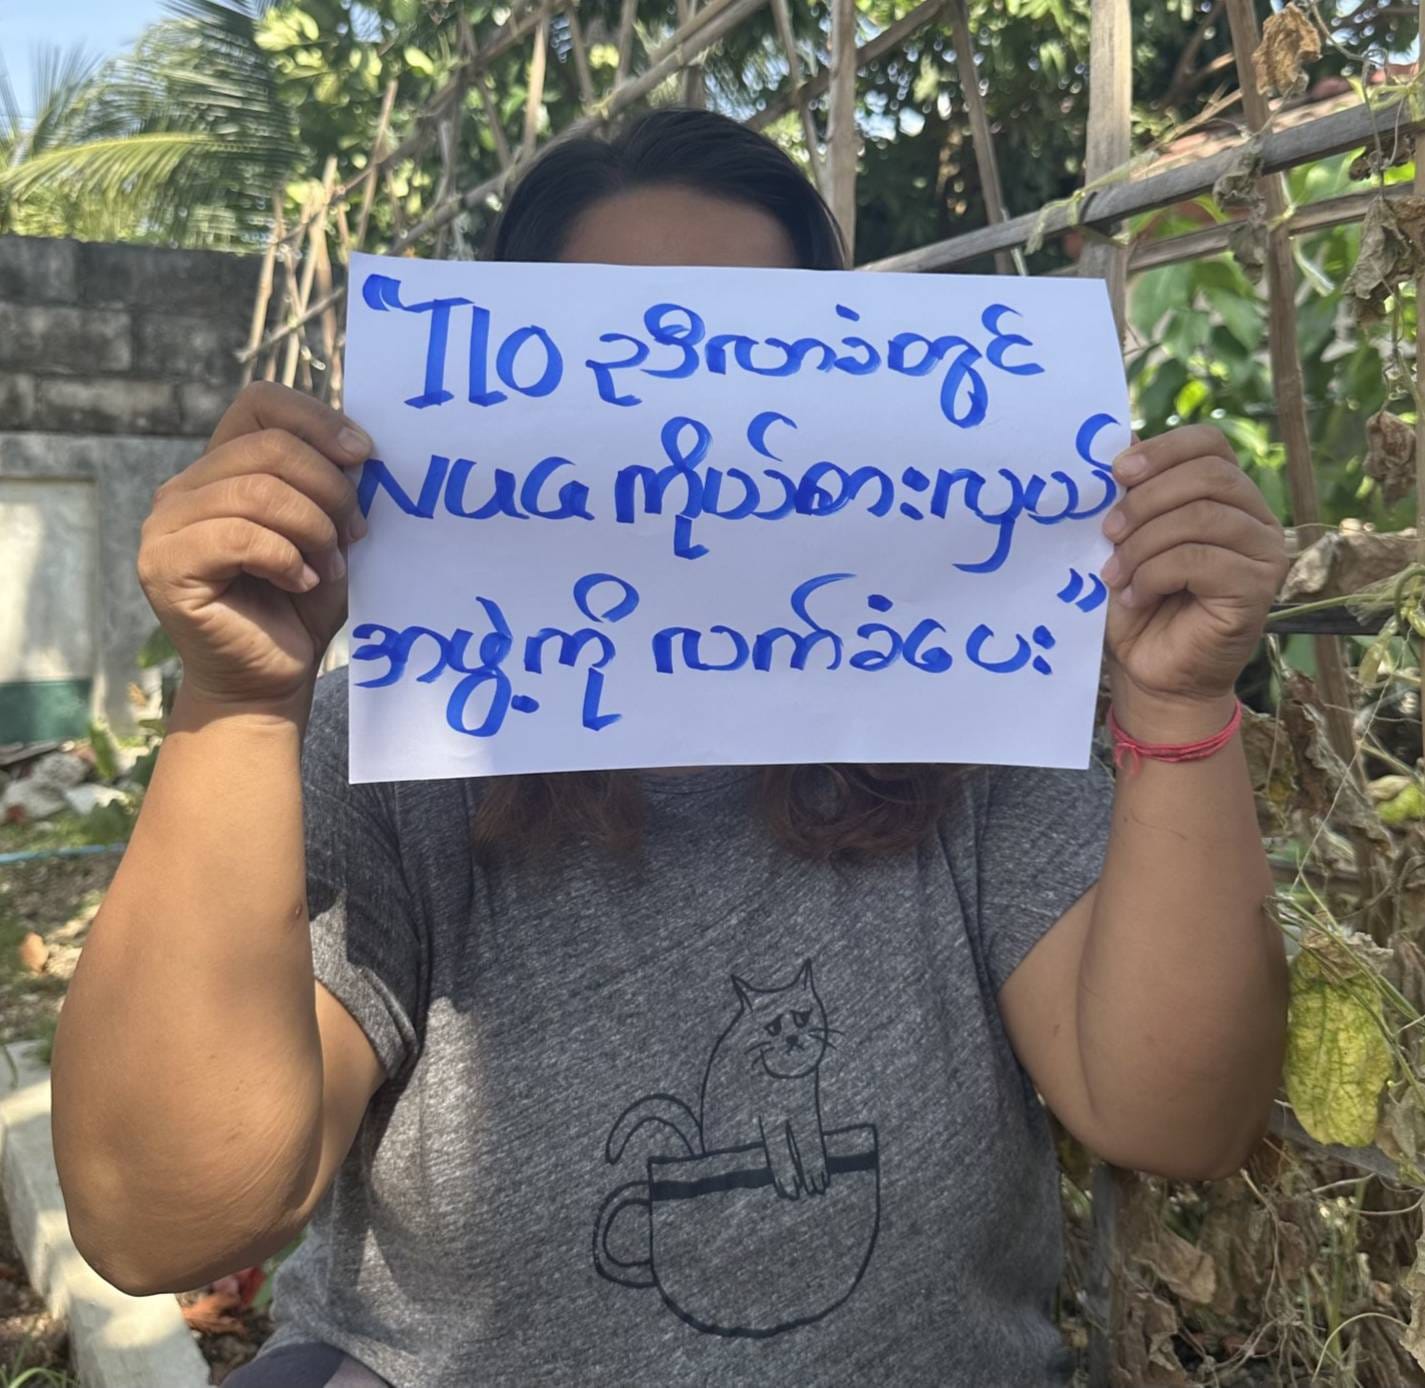 “ILO ညီလာခံတွင်
NUG ကိုယ်စားလှယ်
အဖွဲ့ကို လက်ခံပေး”